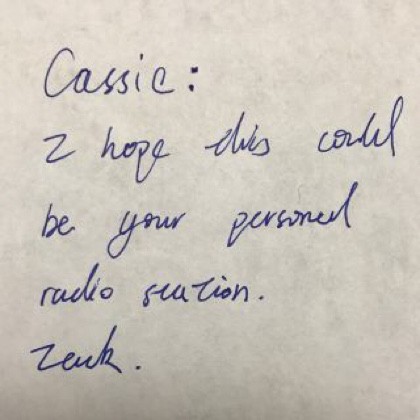 Cassie:
I hope this could
be your personal
radio station.
Zack.